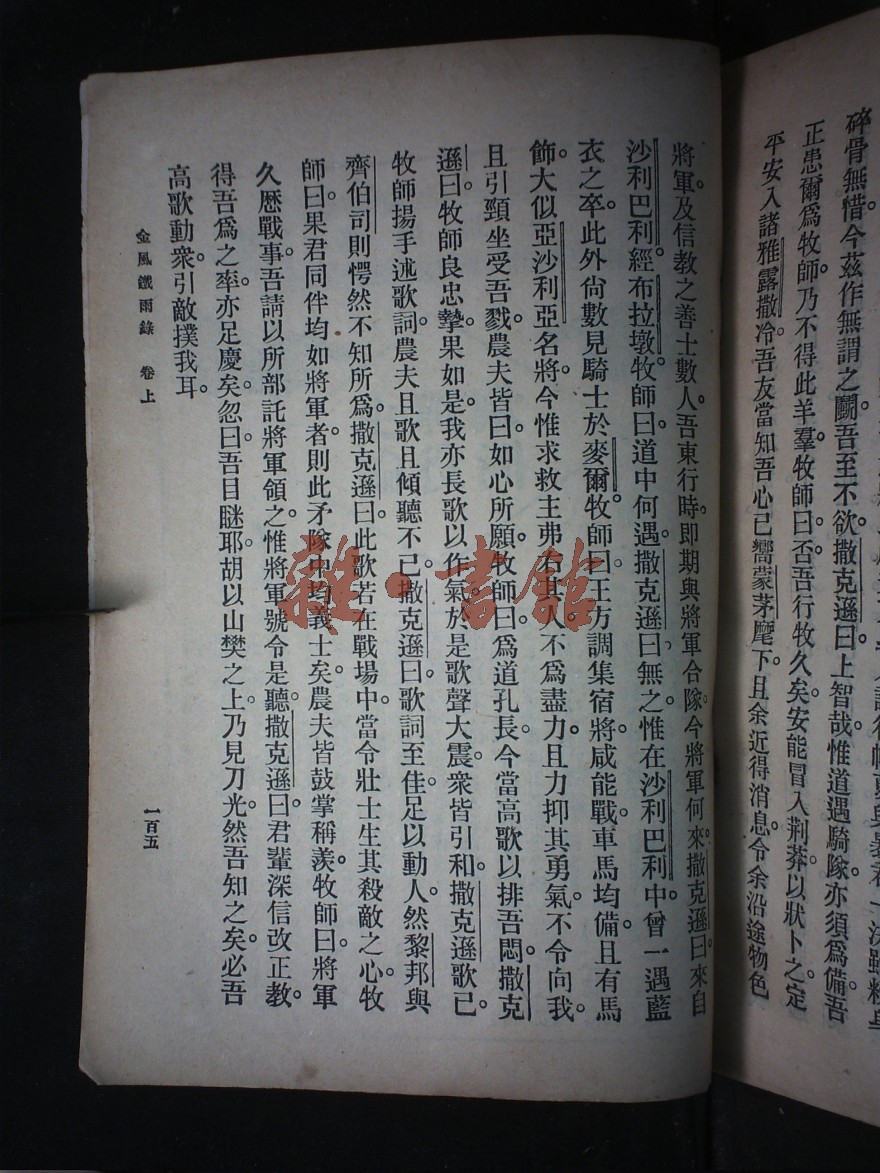 碎骨無惜。今茲作無謂之鬬。吾至不欲。撒克遜曰。上智哉。惟道遇騎隊。亦須爲備。吾
正患爾爲牧師。乃不得此羊羣。牧師曰。否。吾行牧久矣。安能冒入荆莽。以狀卜之。定
平安入諸雅露撒冷。吾友當知吾心已嚮蒙茅麾下。且余近得消息。令余沿途物色
將軍。及信教之善士數人。吾東行時。即期與將軍合隊。今將軍何來。撒克遜曰。來自
沙利巴利。經布拉墩。牧師曰。道中何遇。撒克遜曰。無之。惟在沙利巴利中。曾一遇藍
衣之卒。此外尙數見騎士於麥爾。牧師曰。王方調集宿將。咸能戰。車馬均備。且有馬
飾。大似亞沙利亞名將。今惟求救主弗右其人。不爲盡力。且力抑其勇氣。不令向我。
且引頸坐受吾戮。農夫皆曰。如心所願。牧師曰。爲道孔長。今當高歌以排吾悶。撒克
遜曰。牧師良忠摯。果如是。我亦長歌以作氣。於是歌聲大震。衆皆引和。撒克遜歌已。
牧師揚手述歌詞。農夫且歌且傾聽不已。撒克遜曰。歌詞至佳。足以動人。然黎邦與
齊伯司則愕然不知所爲。撒克遜曰。此歌若在戰場中。當令壯士生其殺敵之心。牧
師曰。果君同伴均如將軍者。則此矛隊中均義士矣。農夫皆鼓掌稱羨。牧師曰。將軍
久歷戰事。吾請以所部託將軍領之。惟將軍號令是聽。撒克遜曰。君輩深信改正教。
得吾爲之率。亦足慶矣。忽曰。吾目瞇耶。胡以山樊之上。乃見刀光。然吾知之矣。必吾
高歌動衆。引敵撲我耳。
金風鐵雨錄 卷上
一百五
雜·書館